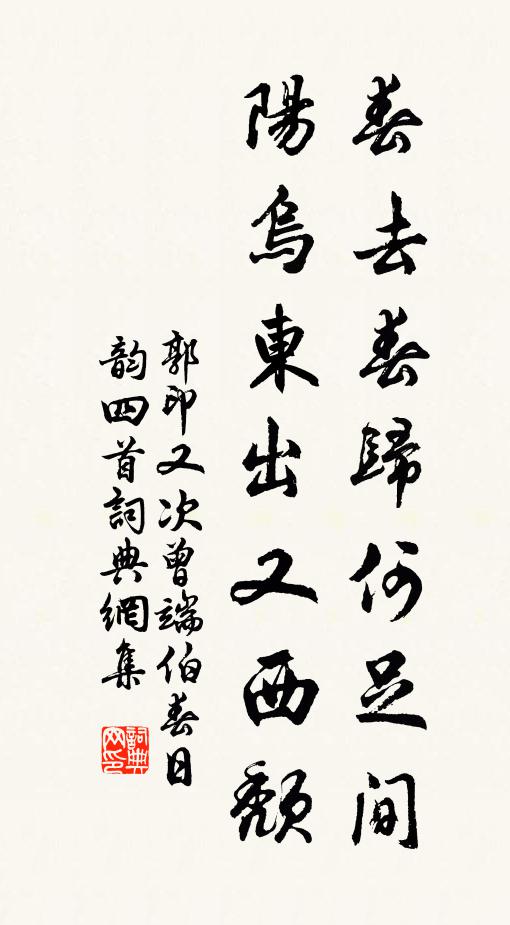 春去春歸何足间
陽烏東出又西頹
郭印又次曾端伯春日
韵四首詞典網集
詞典网印